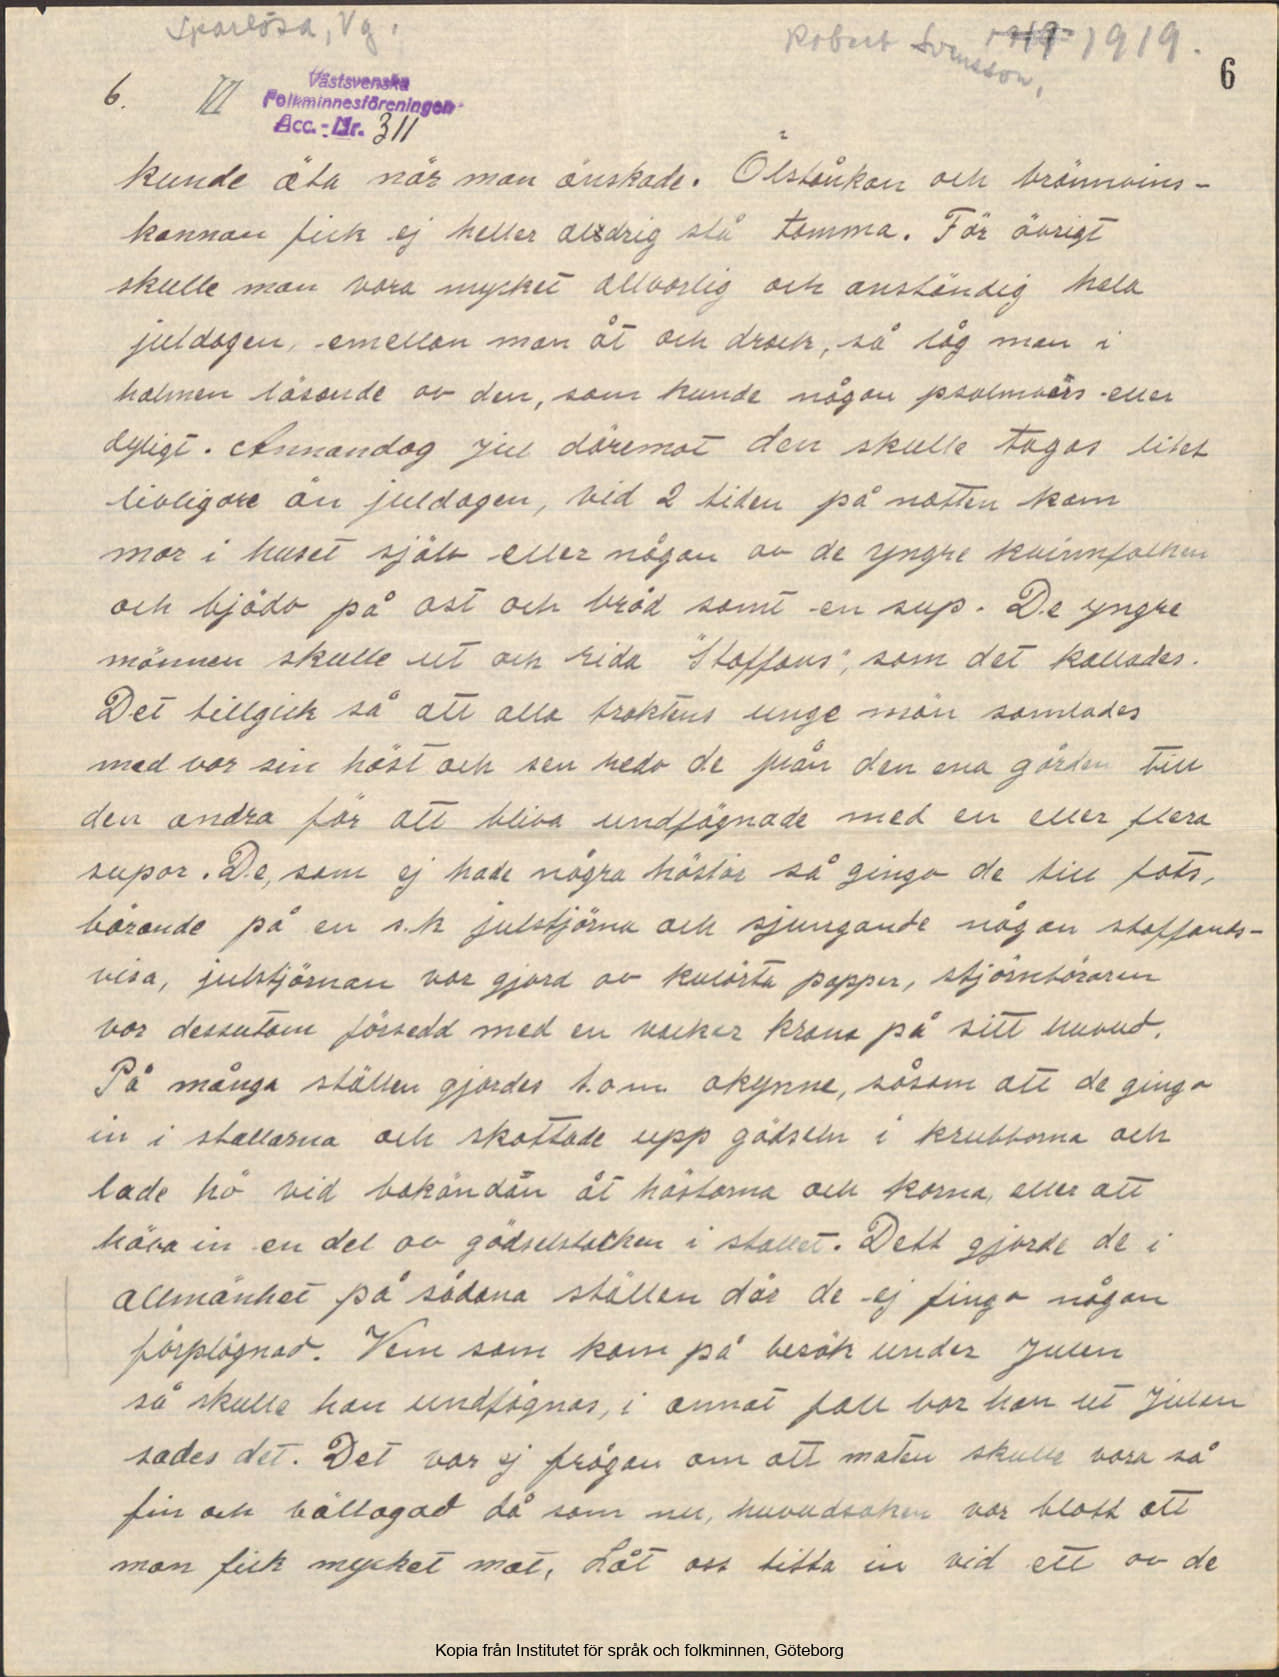 Sparlösa, Vg.
Robert Svensson, 1919.
6
6.
VI
Västsvenska
Folkminnesföreningen
Acc.-Nr. 311
kunde äta när man önskade. Ölstånkan och brännvins-
kannan fick ej heller aldrig stå tomma. För övrigt
skulle man vara mycket allvarlig och anständig hela
juldagen, emellan man åt och drack, så låg man i
halmen läsande av den, som kunde någon psalmvers eller
dyligt. Annandag jul däremot den skulle tagas litet
livligare än juldagen, vid 2 tiden på natten kom
mor i huset själv eller någon av de yngre kvinnfolken
och bjödo på ost och bröd samt en sup. De yngre
männen skulle ut och rida "Staffans", som det kallades.
Det tillgick så att alla traktens unge män samlades
med var sin häst och sen redo de från den ena gården till
den andra för att bliva undfägnade med en eller flera
supar. De, som ej hade några hästar så gingo de till fots,
bärande på en s.k julstjärna och sjungande någon staffands-
visa, julstjärnan var gjord av kulörta papper, stjärnbäraren
var dessutom försedd med en vacker krona på sitt huvud.
På många ställen gjordes t.o.m. okynne, såsom att de gingo
in i stallarna och skottade upp gödseln i krubborna och
lade hö vid bakändan åt hästarna och korna, eller att
häva in en del av gödselstacken i stallet. Dett gjorde de i
allmänhet på sådana ställen där de ej fingo någon
förplägnad. Vem som kom på besök under Julen
så skulle han undfägnas, i annat fall bar han ut Julen
sades det. Det var ej frågan om att maten skulle vara så
fin och vällagad då som nu, huvudsaken var blott att
man fick mycket mat. Låt oss titta in vid ett av de
Kopia från Institutet för språk och folkminnen, Göteborg